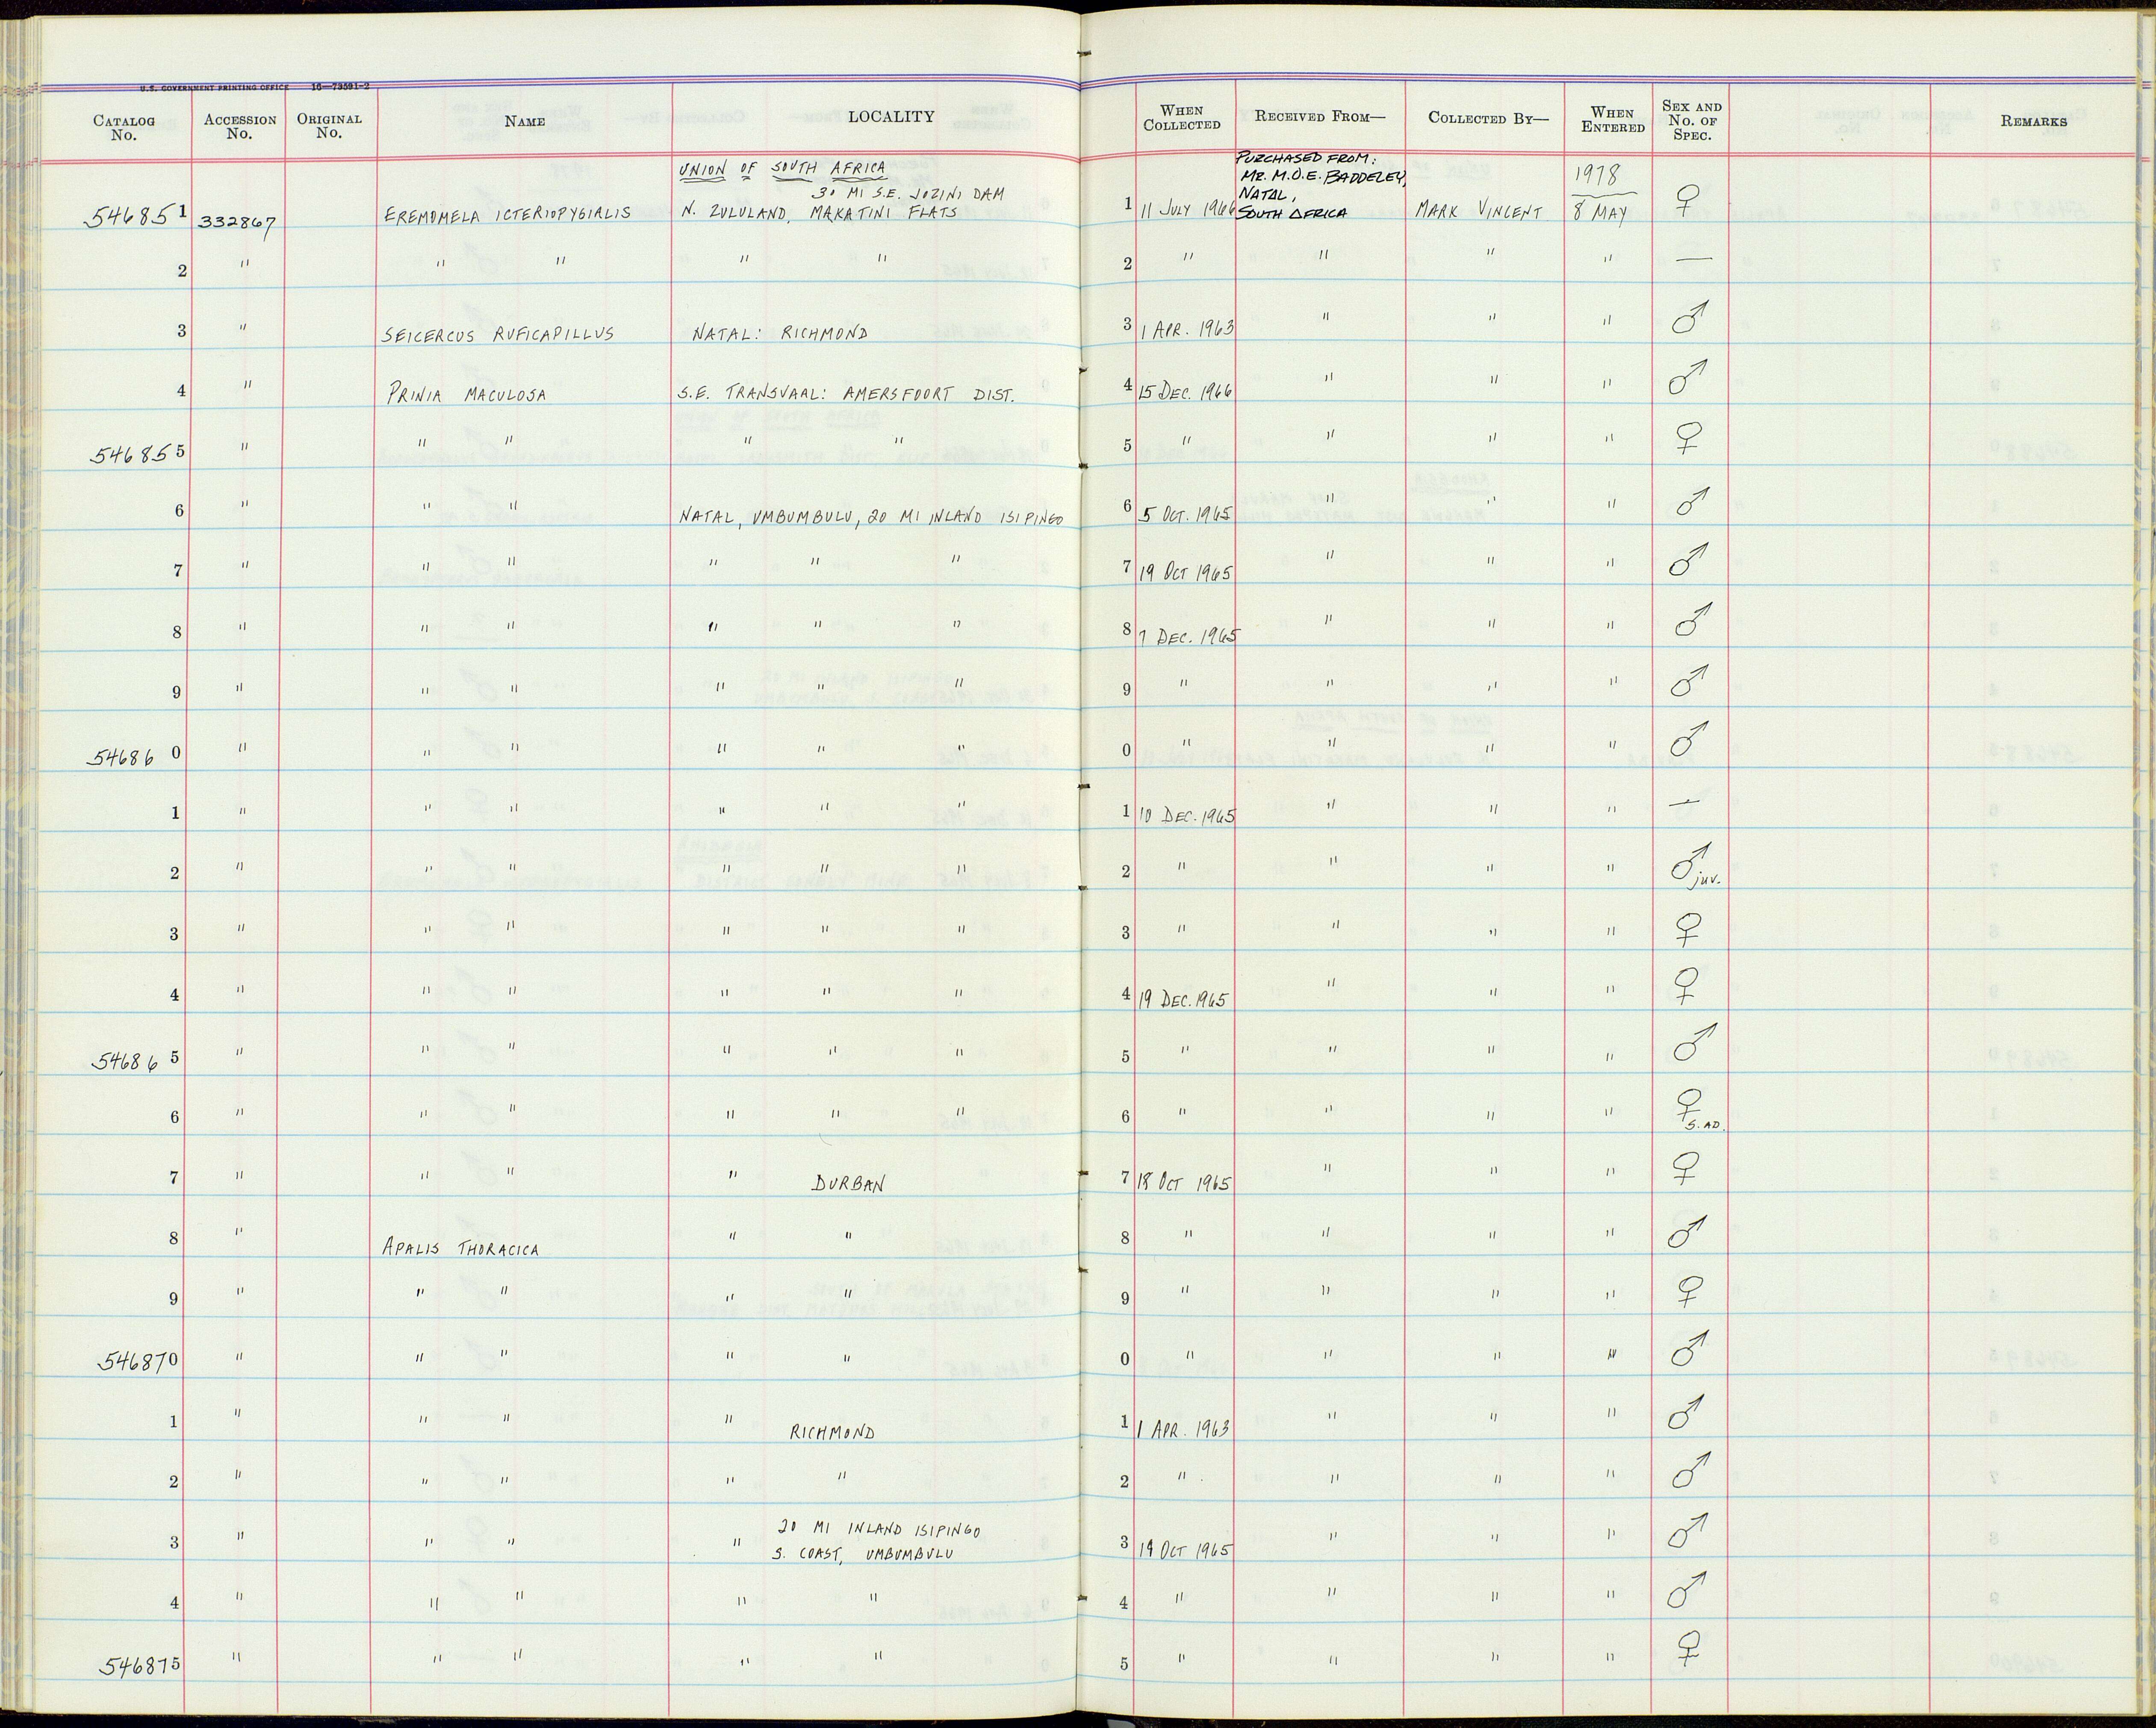 U.S. GOVERNMENT PRINTING OFFICE 16—73591-2
CATALOG No. ACCESSION No. ORIGINAL No. NAME LOCALITY WHEN COLLECTED RECEIVED FROM— COLLECTED BY— WHEN ENTERED SEX AND No. OF SPEC. REMARKS
UNION OF SOUTH AFRICA PURCHASED FROM: 1978
30 MI S.E. JOZINI DAM MR. M.O.E. BADDELEY, NATAL,
546851 332867 EREMOMELA ICTERIOPYGIALIS N. ZULULAND, MAKATINI FLATS 1 11 JULY 1966 SOUTH AFRICA MARK VINCENT 8 MAY ♀
2 " " " " " 2 " " " " —
3 " SEICERCUS RUFICAPILLUS NATAL: RICHMOND 3 1 APR. 1963 " " " ♂
4 " PRINIA MACULOSA S.E. TRANSVAAL: AMERSFOORT DIST. 4 15 DEC. 1966 " " " ♂
546855 " " " " " 5 " " " " ♀
6 " " " NATAL, UMBUMBULU, 20 MI INLAND ISIPINGO 6 5 OCT. 1965 " " " ♂
7 " " " " " " 7 19 OCT 1965 " " " ♂
8 " " " " " " 8 7 DEC. 1965 " " " ♂
9 " " " " " " 9 " " " " ♂
546860 " " " " " " 0 " " " " ♂
1 " " " " " " 1 10 DEC. 1965 " " " —
2 " " " " " " 2 " " " " ♂ juv.
3 " " " " " " 3 " " " " ♀
4 " " " " " " 4 19 DEC. 1965 " " " ♀
546865 " " " " " " 5 " " " " ♂
6 " " " " " " 6 " " " " ♀ S. AD.
7 " " " " DURBAN 7 18 OCT 1965 " " " ♀
8 " APALIS THORACICA " " 8 " " " " ♂
9 " " " " " 9 " " " " ♀
546870 " " " " " 0 " " " " ♂
1 " " " " RICHMOND 1 1 APR. 1963 " " " ♂
2 " " " " " 2 " " " " ♂
20 MI INLAND ISIPINGO
3 " " " " S. COAST, UMBUMBULU 3 19 OCT 1965 " " " ♂
4 " " " " " 4 " " " " ♂
546875 " " " " " 5 " " " " ♀